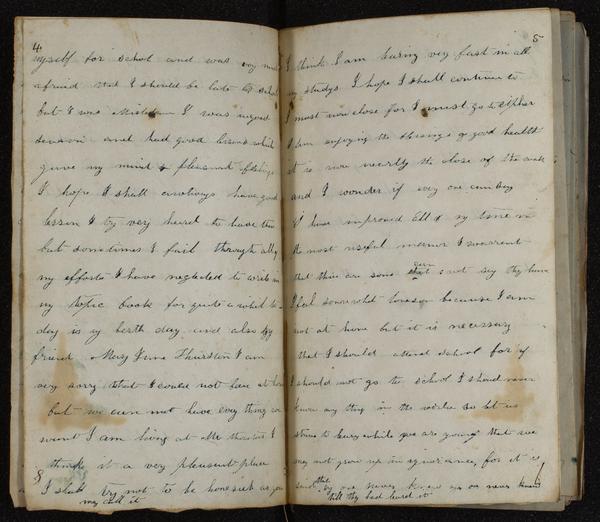 4
myself for school and was very much
afraid that I should be late to school
but I was Mistaken I was in good
season and had good lessons which
gave my mind a pleasant feeling
I hope I shall always have good
lesson I try very hard to have them
but sometimes I fail through all
my efforts I have neglected to write in
my topic book for quite a while to-
day is my berth day and also my
friend Mary Jane Thurston I am
very sorry that I could not be at home
but we can not have every thing we
want I am living at Mr Thurston I
think it a very pleasant place
I shall try not to be homesick as you
may call it
5
I think I am larning very fast in all
my studys I hope I shall continue to
I must now close for I must go to cipher
I am enjoying the blessings of good health
it is now nearly the close of the week
and I wonder if evry one can say
I have improved all of my time in
the most useful manner I warrent
that thare are some that can not say they have
I feal somewhat lonesom because I am
not at home but it is necessary
that I should attend school for if
I should not go to school I should never
know any thing in the world so let us
strive to learn while we are young that we
may not grow up in ignorance, for it is
said that by one never knew you on never knows
till thy had lurnd it